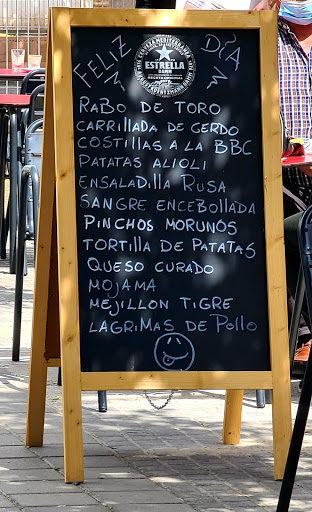 FELIZ DÍA
CERVEZA MEDITERRÁNEA
ESTRELLA
DAMM
RECETA ORIGINAL
RABO DE TORO
CARRILLADA DE CERDO
COSTILLAS A LA BBC
PATATAS ALIOLI
ENSALADILLA RUSA
SANGRE ENCEBOLLADA
PINCHOS MORUNOS
TORTILLA DE PATATAS
QUESO CURADO
MOJAMA
MEJILLON TIGRE
LAGRIMAS DE POLLO
ESTRELLA